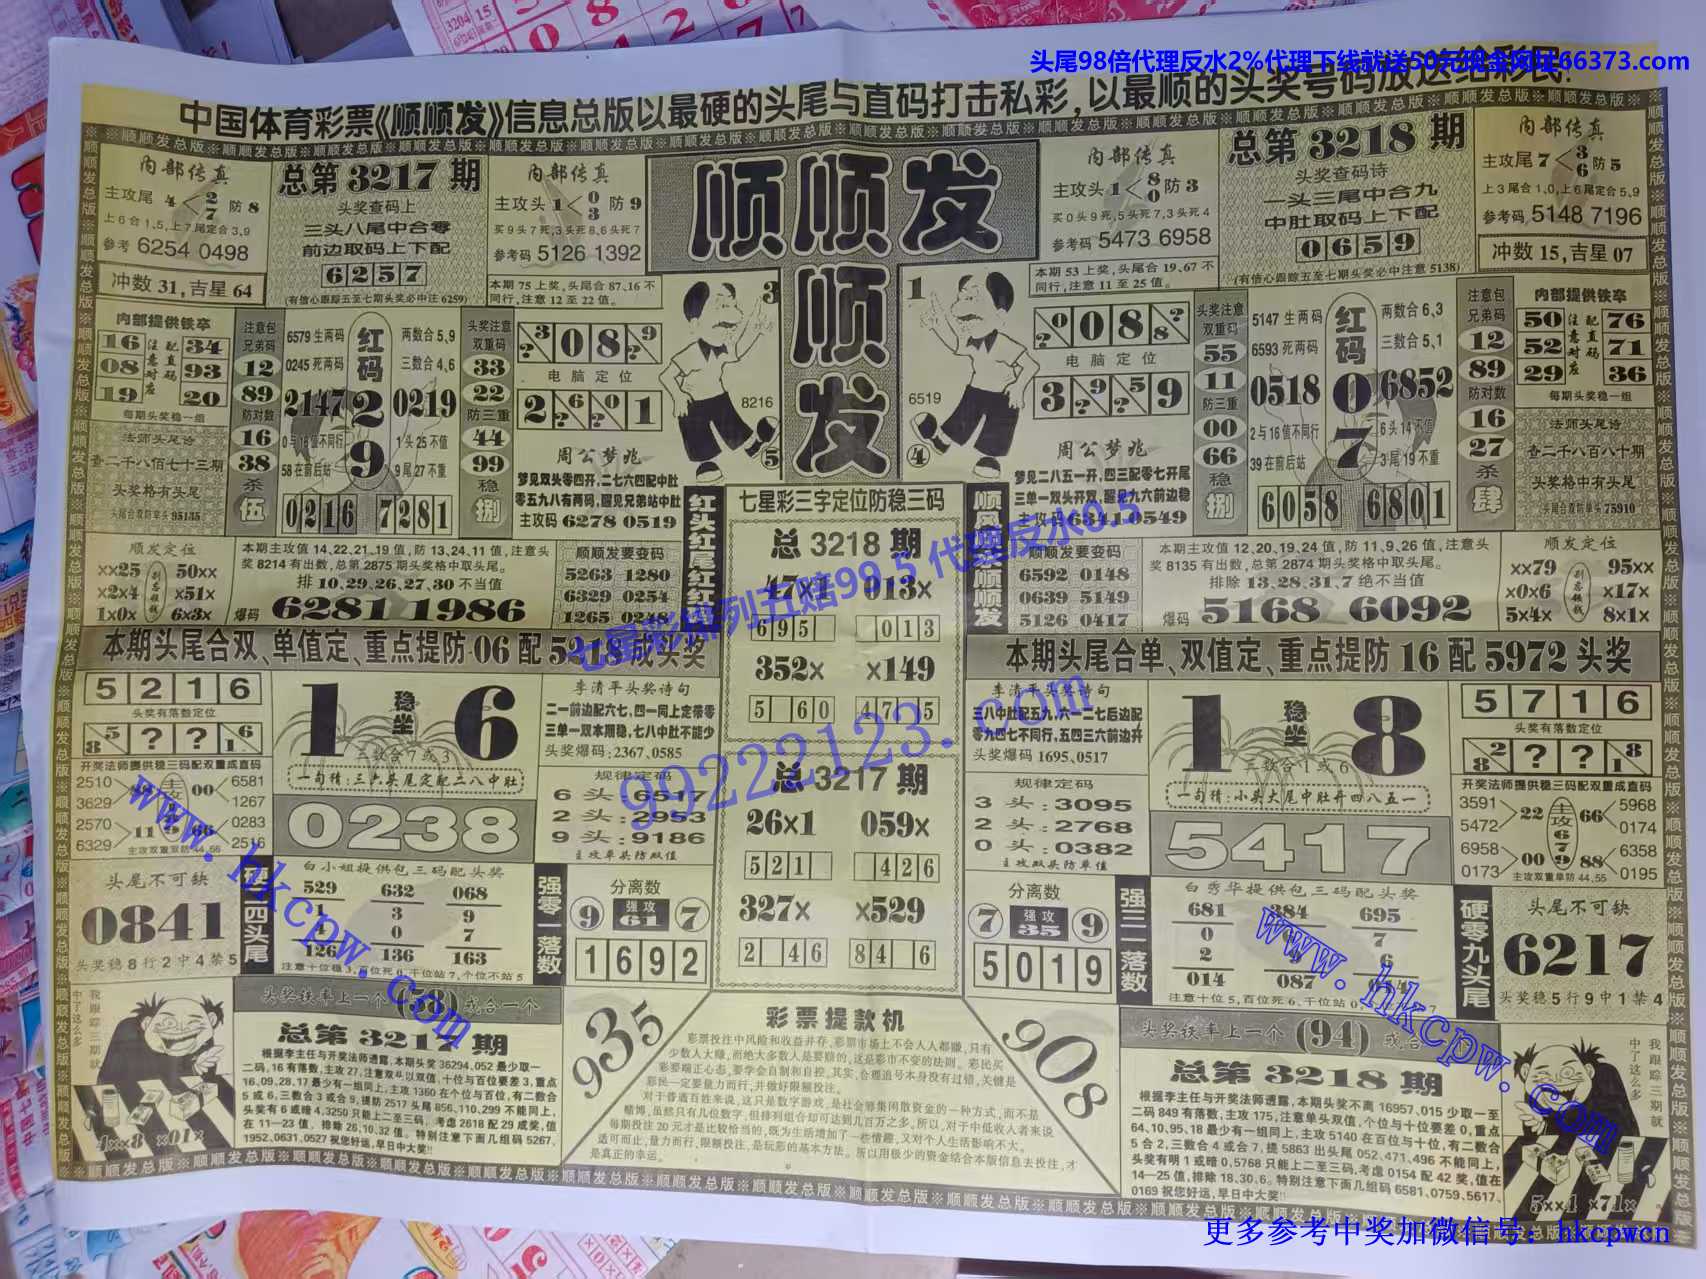 头尾98倍代理反水2%代理下线就送50元现金网址66373.com
中国体育彩票《顺顺发》信息总版以最硬的头尾与直码打击私彩,以最顺的头奖号码放送给彩民!
内部传真
主攻尾 4<2 7 防8
上6合1,5,上7尾定合3,9
参考 6254 0498
冲数31,吉星64
总第3217期
头奖查码上
三头八尾中合零
前边取码上下配
6257
(有信心跟踪五至七期头奖必中注6259)
内部传真
主攻头 1<0 3 防9
买9头7死,3头死8,6头死7
参考码 5126 1392
本期75上奖,头尾合87、16不
同行,注意12至22值。
顺顺发
顺
发
内部传真
主攻头 1<8 0 防3
买0头9死,5头死7,3头死4
参考码 5473 6958
本期53上奖,头尾合19、67不
同行,注意11至25值。
总第3218期
头奖查码诗
一头三尾中合九
中肚取码上下配
0659
(有信心跟踪五至七期头奖必中注意5138)
内部传真
主攻尾 7<3 6 防5
上3尾合1,0,上6尾定合5,9
参考码 5148 7196
冲数15,吉星07
内部提供铁卒
16 注配 34
08 意直 93
19 对码应 20
每期头奖稳一组
法师头尾诗
查二千八百七十三期
头奖格有头尾
头尾合双防单头95135
注意包兄弟码
12
89
防对数
16
38
杀
伍
6579生两码
0245死两码
红码
两数合5,9
三数合4,6
2147 2 0219
0与16值不同行
1头25不值
58在前后站
9
9尾27不重
0216 7281
头奖注意双重码
33
22
防三重
44
99
稳
捌
3? 0 8 ?9
电脑定位
2 ?6 ?0 1
周公梦兆
梦见双头零四开,二七六四配中肚
零五九八有两码,醒见兄弟站中肚
主攻码 6278 0519
3
8216
5
1
6519
4
?0 0 8 8?
电脑定位
3 ?9 ?5 9
周公梦兆
梦见二八五一开,四三配零七开尾
三单一双头开双,醒见九六前边稳
主攻码 6341 0549
头奖注意双重码
55
11
防三重
00
66
稳
捌
5147生两码
6593死两码
红码
两数合6,3
三数合5,1
0518 0 6852
2与16值不同行
6头14不值
39在前后站
7
3尾19不重
6058 6801
注意包兄弟码
12
89
防对数
16
27
杀
肆
内部提供铁卒
50 注配 76
52 意直 71
29 对码应 36
每期头奖稳一组
法师头尾诗
查二千八百八十期
头奖格中有头尾
头尾合双防单头75910
顺发定位
xx25 50xx
x2x4 x51x
1x0x 6x3x
本期主攻值14、22、21、19值,防13、24、11值,注意头
奖8214有出数,总第2875期头奖格中取头尾。
排10、29、26、27、30不当值
爆码 6281 1986
顺顺发要变码
5263 1280
6329 0254
1265 0248
红头红尾红红发
七星彩三字定位防稳三码
总3218期
47x1 013x
695 013
352x x149
5 60 47 5
总3217期
26x1 059x
521 426
327x x529
2 46 84 6
七星彩排列五赔99.5代理反水0.5
99222123.com
顺顺发要变码
6592 0148
0639 5149
5126 0417
本期主攻值12、20、19、24值,防11、9、26值,注意头
奖8135有出数,总第2874期头奖格中取头尾。
排除13、28、31、7绝不当值
爆码 5168 6092
顺发定位
xx79 95xx
x0x6 x17x
5x4x 8x1x
本期头尾合双、单值定、重点提防06配5218成头奖
本期头尾合单、双值定、重点提防16配5972头奖
5216
头奖有落数定位
8 5 ? ? 1 6
开奖法师提供稳三码配双重成直码
2510 6581
3629 88 00 1267
2570 11 66 0283
6329 2516
主攻双重双防44,55
1 稳坐 6
三数合7或3
一句精:三六头尾定配二八中肚
0238
李清平头奖诗句
二一前边配六七,四一同上定带零
三单一双本期稳,七八中肚不能少
头奖爆码:2367、0585
规律定码
6头:6517
2头:2953
9头:9186
主攻单头防双值
李清平头奖诗句
三八中肚配五九,六一二七后边配
零九四七不同行,五四三六前边开
头奖爆码:1695、0517
规律定码
3头:3095
2头:2768
0头:0382
主攻双头防单值
1 稳坐 8
三数合1或6
一句精:小头大尾中肚开四八五一
5417
5716
头奖有落数定位
2 8 ? ? 1 8
开奖法师提供稳三码配双重成直码
3591 5968
5472 22 66 0174
主攻679
6958 00 88 6358
0173 0195
主攻双重单防44,55
头尾不可缺
0841
头奖稳8行2中4禁5
硬二四头尾
白小姐提供包三码配头奖
529 632 068
1 3 9
1 0 7
126 136 163
强零一落数
分离数
9 强攻61 7
1692
分离数
7 强攻35 9
5019
强三一落数
白秀华提供包三码配头奖
681 384 695
0 7
2 6
014 087
硬零九头尾
头尾不可缺
6217
头奖稳5行9中1禁4
我跟踪三期就
中了这么多
头奖铁率上一个(58)或合一个
总第3217期
根据李主任与开奖法师透露,本期头奖36294,052最少取一
二码,16有落数,主攻27,注意双斗以双值,十位与百位要差3,重点
16,09,28,17最少有一组同上,主攻1360在个位与百位,有二数合
5或6,三数合3或合9,提防2517头尾856,110,299不能同上,
头奖有6或暗4,3250只能上二至三码,考虑2618配29成奖,值
在11—23值,排除26,10,32值。特别注意下面几组码5267,
1952,0631,0527祝您好运,早日中大奖!!
935
彩票提款机
彩票投注中风险和收益并存,彩票市场上不会人人都赚,只有
少数人大赚,而绝大多数人是要赔的,这是彩市不变的法则。彩民买
彩要端正心态,要学会自制和自控。其实,合理追号本身没有过错,关键是
彩民一定要量力而行,并做好限额投注。
对于普通百姓来说,这只是数字游戏,是社会筹集闲散资金的一种方式,而不是
赌博,虽然只有几位数字,但排列组合却可达到几百万之多,所以,对于中低收入者来说
每期投注20元才是比较恰当的,既为生活增加了一些情趣,又对个人生活影响不大。
适可而止,量力而行,限额投注,是玩彩的基本方法。所以用极少的资金结合本版信息去投注,才
是真正的幸运。
908
头奖铁率上一个(94)或合一个
总第3218期
根据李主任与开奖法师透露,本期头奖不离16957,015少取一至
二码849有落数,主攻175,注意单头双值,个位与十位要差0,重点
64,10,95,18最少有一组同上,主攻5140在百位与十位,有二数合
5合2,三数合4或合7,提5863出头尾052,471,496不能同上,
头奖有明1或暗0,5768只能上二至三码,考虑0154配42奖,值在
14—25值,排除18,30,6。特别注意下面几组码6581,0759,5617,
0169祝您好运,早日中大奖!!
我跟踪三期就
中了这么多
4xx8 x01x
5xx4 x71x
www.hkcpw.com
www.hkcpw.com
更多参考中奖加微信号:hkcpwcn